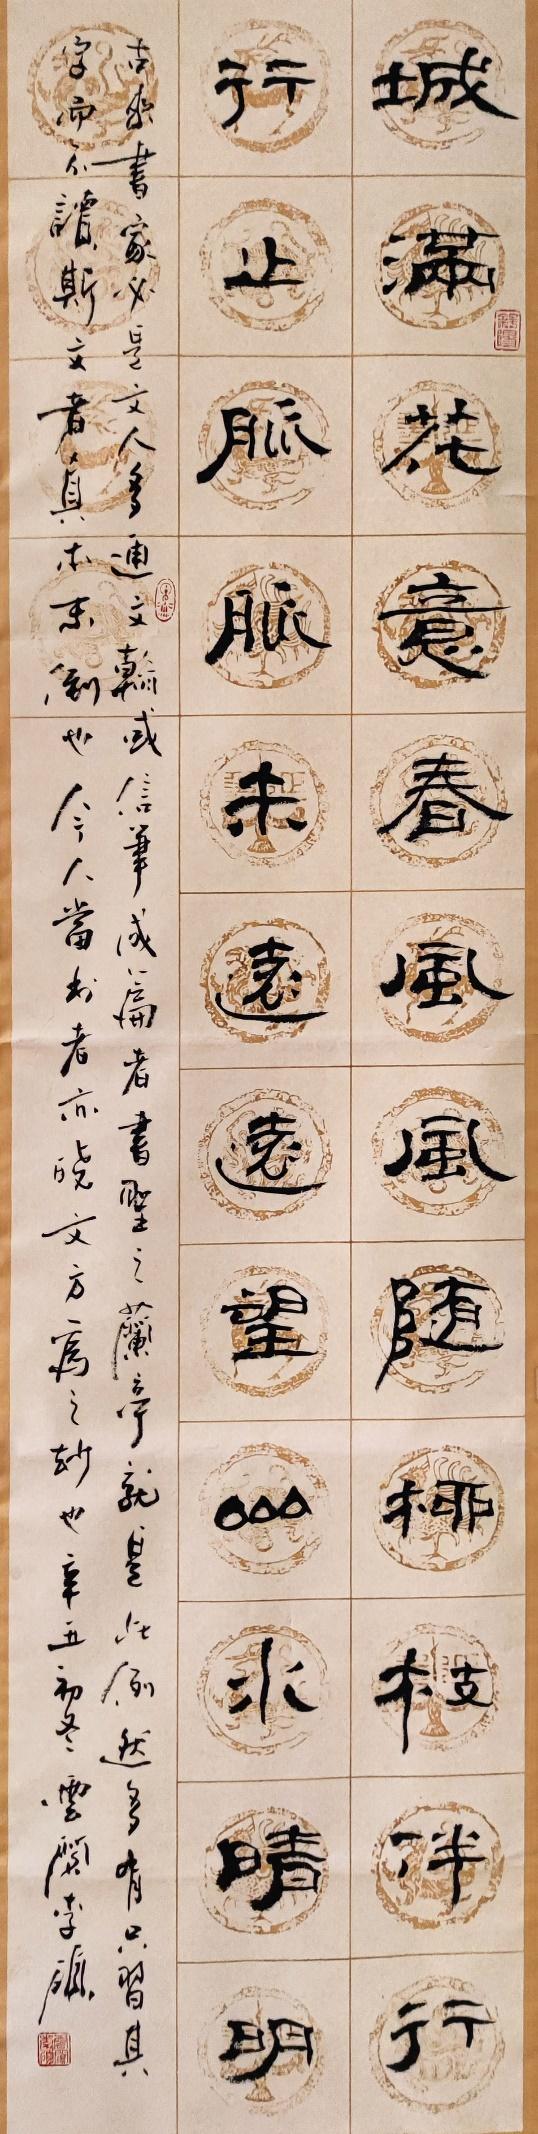 城滿花意春風風随柳枝伴行
行止脈脈未遠遠望水晴明
古来書家必是文人多通文翰或信筆成篇者書聖之蘭亭就是此例然多有只習其
字而不讀斯文者真本末倒也今人當書者亦曉文方為之妙也辛丑初冬雲閣李